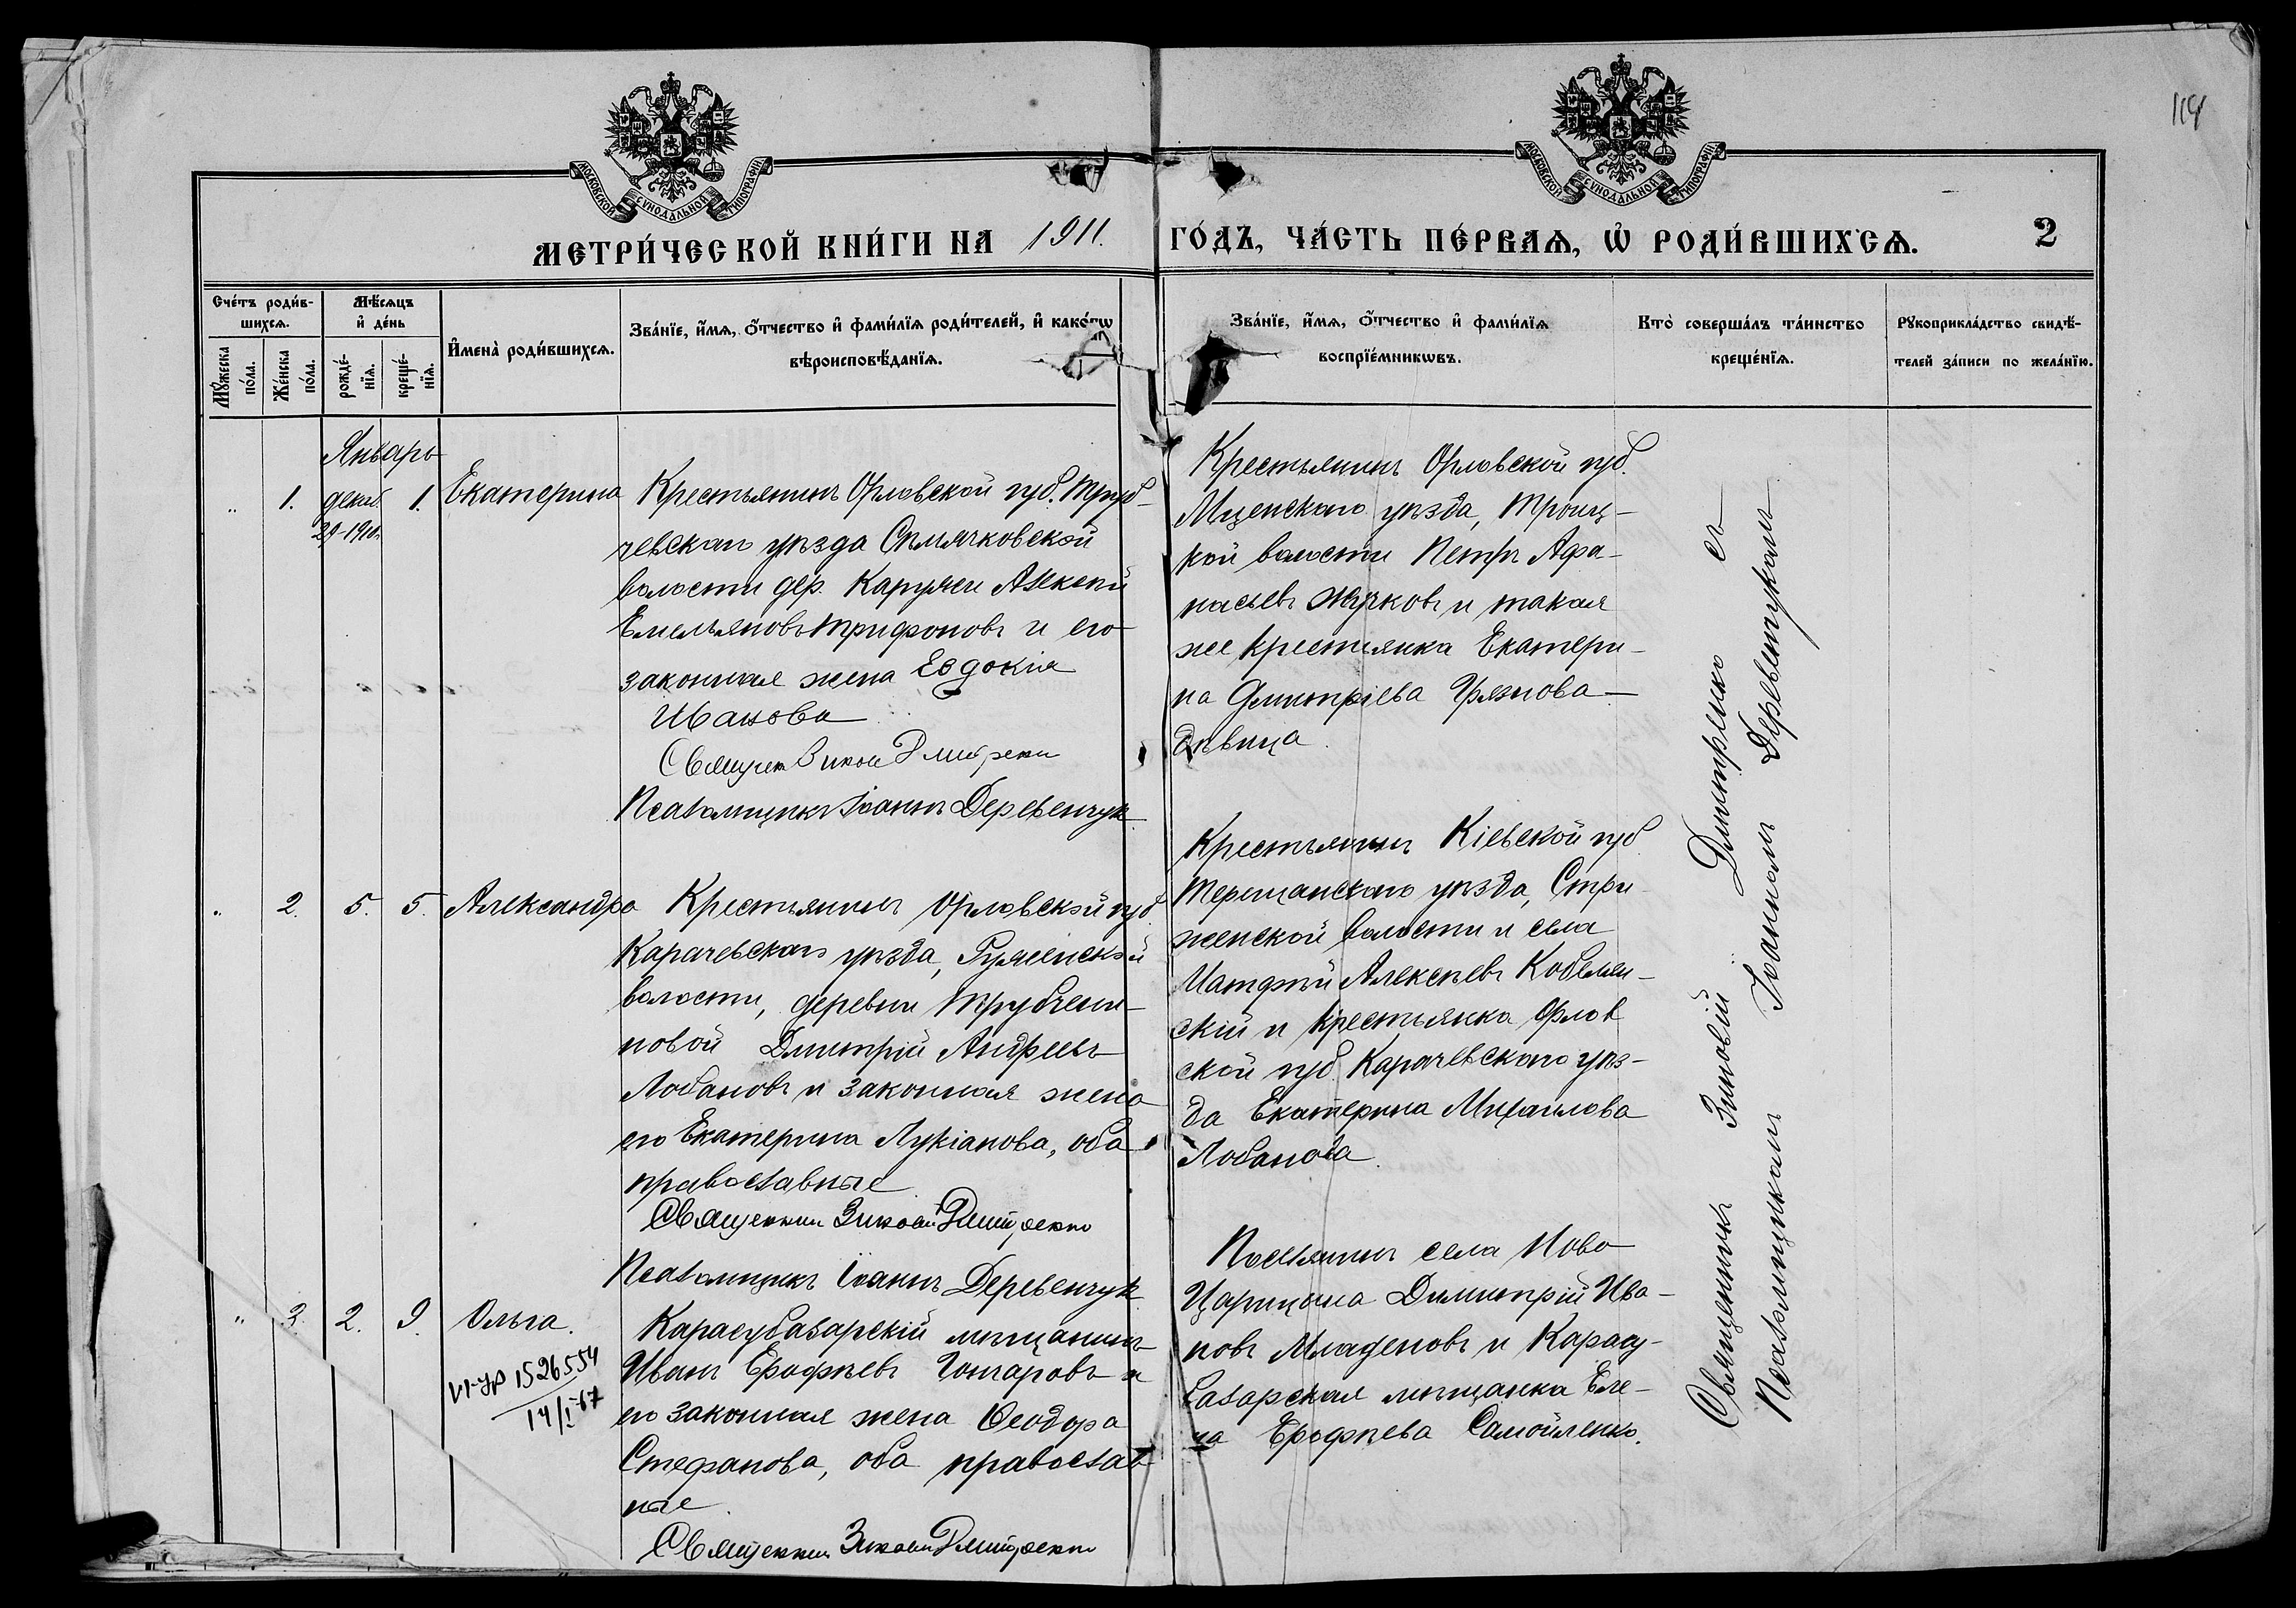 МОСКОВСКОЙ СѴНОДАЛЬНОЙ ТИПОГРАФІИ
МОСКОВСКОЙ СѴНОДАЛЬНОЙ ТИПОГРАФІИ
МЕТРИ́ЧЕСКОЙ КНИ́ГИ НА 1911. ГО́ДЪ, ЧА́СТЬ ПЕ́РВАѦ, Ѡ҆ РОДИ́ВШИХСѦ. 2
Сче́тъ роди́в-
шихсѧ.
Мꙋ́жеска по́ла.
Же́нска по́ла.
Мѣ́сѧцъ
и҆ де́нь
рожде́-
нїѧ.
креще́-
нїѧ.
И҆мена̀ роди́вшихсѧ.
Зва́нїе, и҆́мѧ, ѻ҆́тчество и҆ фами́лїѧ роди́телей, и҆ како́гѡ
вѣроисповѣ́данїѧ.
Зва́нїе, и҆́мѧ, ѻ҆́тчество и҆ фами́лїѧ
воспрїе́мникѡвъ.
Кто̀ соверша́лъ та́инство
креще́нїѧ.
Рꙋкоприкла́дство свидѣ́-
телей за́писи по жела́нїю.
Январь
" 1. декаб. 29-1910. 1. Екатерина
Крестьянинъ Орловской губ. Труб-
чевскаго уѣзда Семячковской
волости дер. Алексѣй
Емельяновъ Трифоновъ и его
законная жена Евдокія
Иванова
Священ Зиновій Дмитренко
Псаломщикъ Іоаннъ Деревенчук
Крестьянинъ Орловской губ.
Мценскаго уѣзда, Троиц-
кой волости Петръ Афа-
насьевъ Жучковъ и такая
же крестьянка Екатери-
на Димитріева Грязнова—
дѣвица.
" 2. 5. 5. Александра
Крестьянинъ Орловской губ
Карачевскаго уѣзда,
волости, деревни Трубчени-
новой Дмитрій Андреевъ
Лобановъ и законная жена
его Екатерина Лукіанова, оба
православные
Священник Зиновій Дмитренко
Псаломщикъ Іоаннъ Деревенчук
Крестьянинъ Кіевской губ
уѣзда, Стри-
женской волости и села
Матфѣй Алексѣевъ Кобелян-
скій и крестьянка Орлов
ской губ. Карачевскаго уѣз-
да Екатерина Михаилова
Лобанова.
" 3. 2. 9. Ольга.
VI-УР 1526554
14/I-67
Карасубазарскій мѣщанинъ
Иванъ Ерофѣевъ Гончаровъ и
его законная жена Ѳеодора
Стефанова, оба православ
ные.
Священник Зиновій Дмитренко
Поселянинъ села Ново
Царицына Димитрій Ива-
новъ Младеновъ и Карасу-
базарская мѣщанка Еле-
на Ерофѣева Самойленко.
Священникъ Зиновій Димитренко съ
Псаломщикомъ Іоанномъ Деревенчукомъ